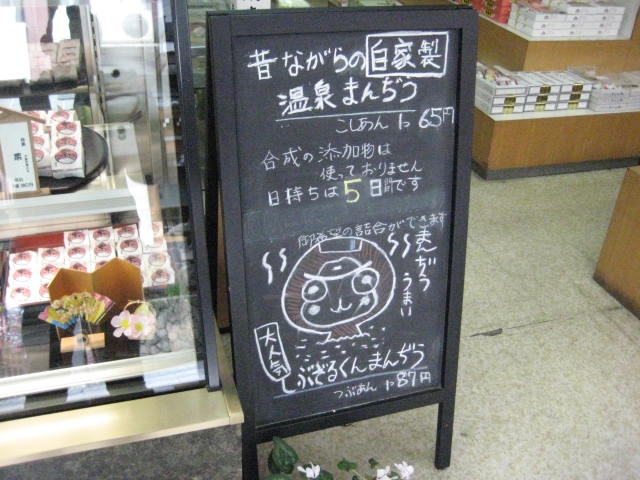 昔ながらの自家製
温泉まんぢう
こしあん 1コ 65円
合成の添加物は
使っておりません
日持ちは5日間です
御希望の詰合ができます
まんぢう
うまい
大人気
しぶざるくんまんぢう
つぶあん 1コ 87円